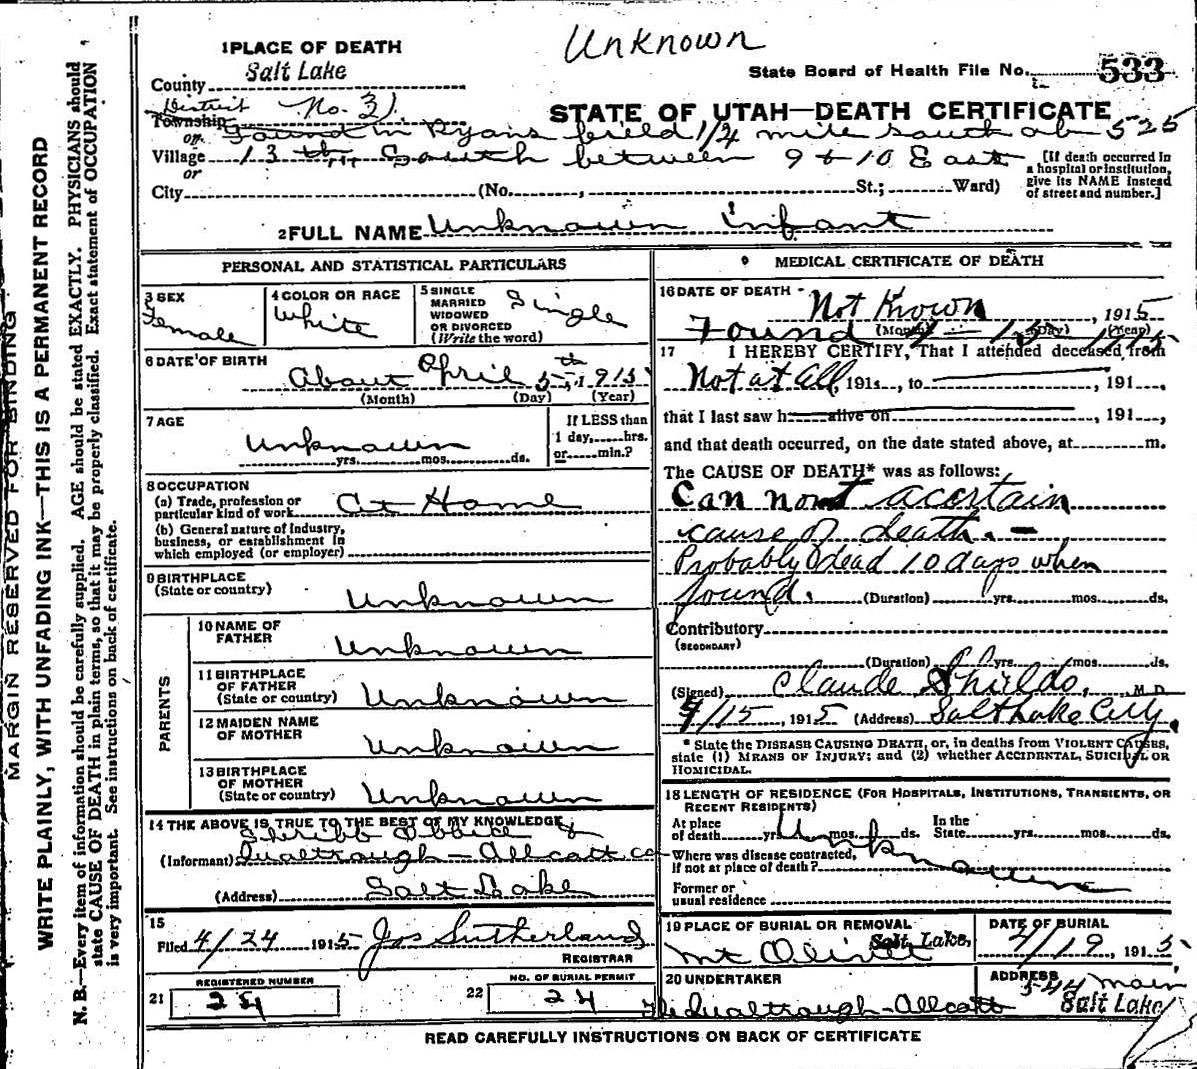 Unknown
1 PLACE OF DEATH
County Salt Lake
State Board of Health File No. 533
District No. 31
Township
STATE OF UTAH—DEATH CERTIFICATE
or Found in Ryans field 1/4 mile south of 525
Village 13 th South between 9 & 10 East
or
[If death occurred in
a hospital or institution,
give its NAME instead
of street and number.]
City (No. , St.; Ward)
2 FULL NAME Unknown infant
PERSONAL AND STATISTICAL PARTICULARS
3 SEX
Female
4 COLOR OR RACE
White
5 SINGLE
MARRIED
WIDOWED
OR DIVORCED
(Write the word)
Single
6 DATE OF BIRTH
About April 5th, 1915
(Month) (Day) (Year)
7 AGE
Unknown
yrs. mos. ds.
If LESS than
1 day, hrs.
or min.?
8 OCCUPATION
(a) Trade, profession or
particular kind of work At Home
(b) General nature of Industry,
business, or establishment in
which employed (or employer)
9 BIRTHPLACE
(State or country) Unknown
PARENTS
10 NAME OF
FATHER Unknown
11 BIRTHPLACE
OF FATHER
(State or country) Unknown
12 MAIDEN NAME
OF MOTHER Unknown
13 BIRTHPLACE
OF MOTHER
(State or country) Unknown
14 THE ABOVE IS TRUE TO THE BEST OF MY KNOWLEDGE
Sheriff Office &
(Informant) Dualtrough-Allcott Co
(Address) Salt Lake
15
Filed 4/24 1915 Jos Sutherland
REGISTRAR
REGISTERED NUMBER
21 24
NO. OF BURIAL PERMIT
22 24
MEDICAL CERTIFICATE OF DEATH
16 DATE OF DEATH
Not Known, 1915
(Month) (Day) (Year)
Found 4-15 1915
17 I HEREBY CERTIFY, That I attended deceased from
Not at All, 191 , to , 191 ,
that I last saw h alive on , 191 ,
and that death occurred, on the date stated above, at m.
The CAUSE OF DEATH* was as follows:
Can not acertain
cause of death. -
Probably dead 10 days when
found. (Duration) yrs. mos. ds.
Contributory
(SECONDARY)
(Duration) yrs. mos. ds.
(Signed) Claude Shields, M D
4/15, 1915 (Address) Salt Lake City
* State the DISEASE CAUSING DEATH, or, in deaths from VIOLENT CAUSES,
state (1) MEANS OF INJURY; and (2) whether ACCIDENTAL, SUICIDAL OR
HOMICIDAL.
18 LENGTH OF RESIDENCE (FOR HOSPITALS, INSTITUTIONS, TRANSIENTS, OR
RECENT RESIDENTS)
At place
of death yrs. mos. ds.
In the
State yrs. mos. ds.
Where was disease contracted,
if not at place of death? Unknown
Former or
usual residence
19 PLACE OF BURIAL OR REMOVAL
Mt Olivet Salt Lake.
DATE OF BURIAL
4/19, 1915
20 UNDERTAKER
The Dualtrough-Allcott
ADDRESS
544 Main
Salt Lake
READ CAREFULLY INSTRUCTIONS ON BACK OF CERTIFICATE
MARGIN RESERVED FOR BINDING
WRITE PLAINLY, WITH UNFADING INK—THIS IS A PERMANENT RECORD
N. B.—Every item of information should be carefully supplied. AGE should be stated EXACTLY. PHYSICIANS should
state CAUSE OF DEATH in plain terms, so that it may be properly classified. Exact statement of OCCUPATION
is very important. See instructions on back of certificate.